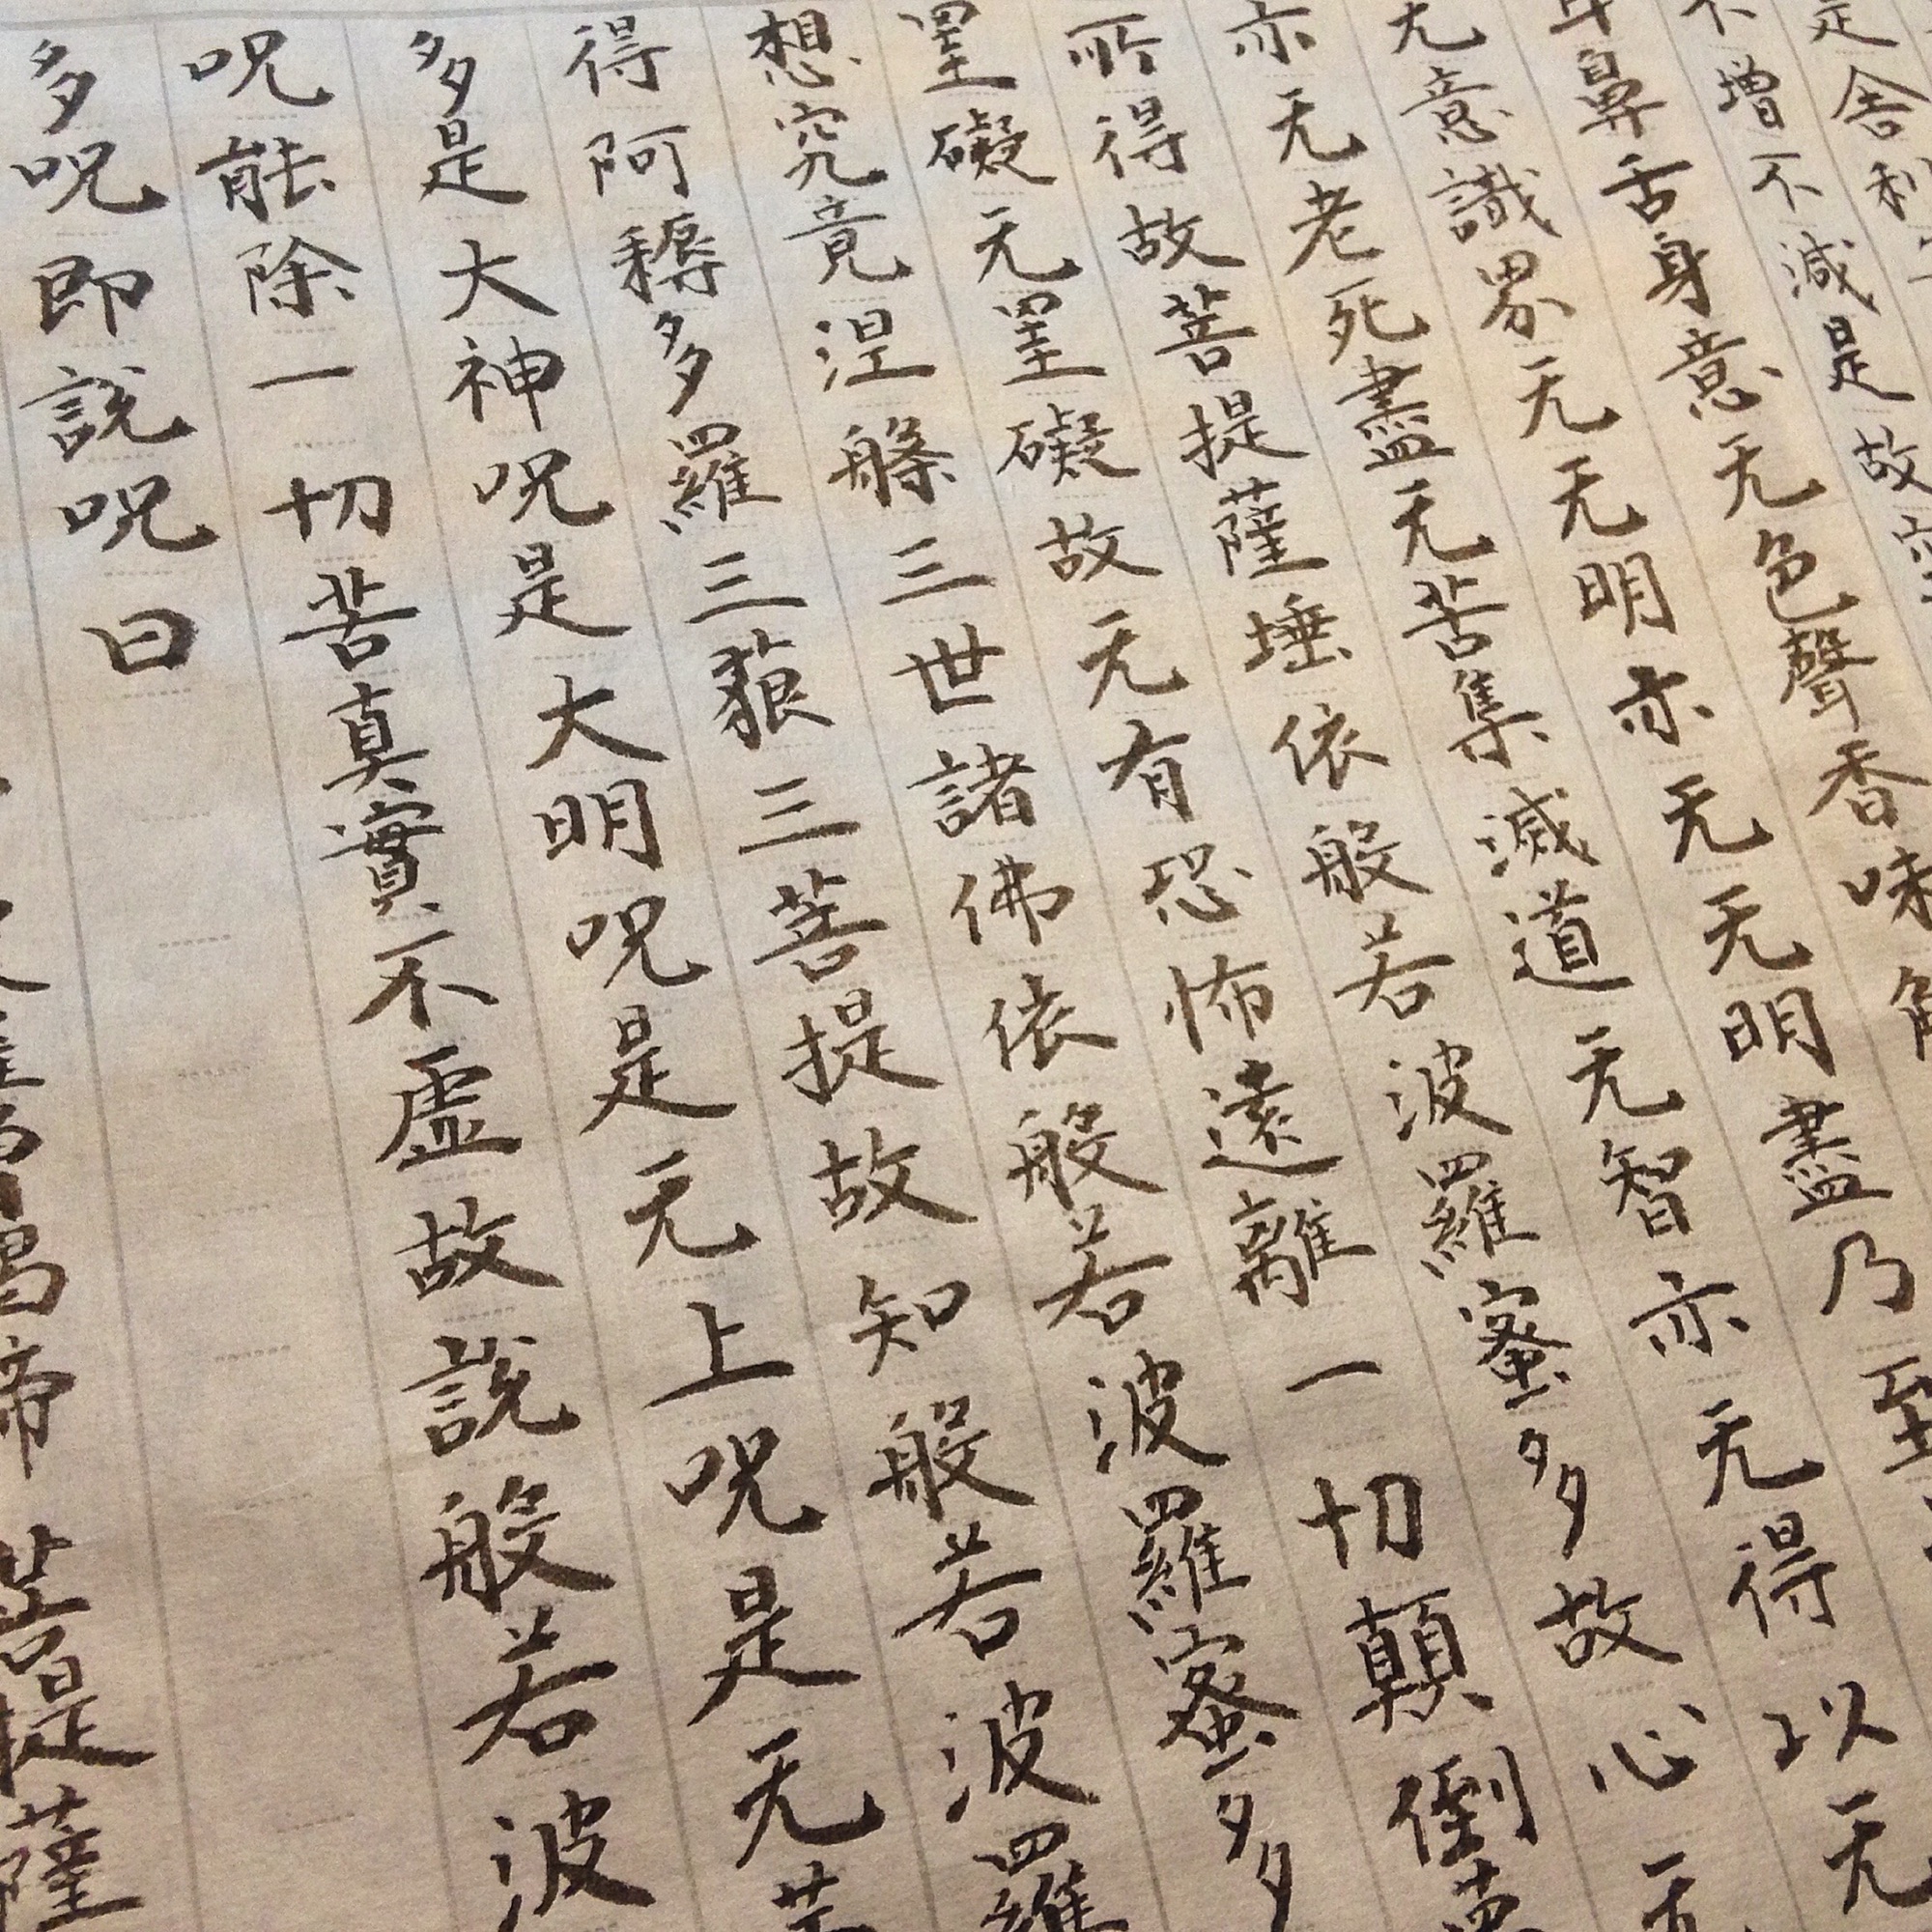 是舍利
不增不減是故空
鼻舌身意无色聲香味觸
无意識界无无明亦无无明盡乃至
亦无老死盡无苦集滅道无智亦无得以无
所得故菩提薩埵依般若波羅蜜多故心无
罣礙无罣礙故无有恐怖遠離一切顛倒夢
想究竟涅槃三世諸佛依般若波羅蜜多
得阿耨多羅三藐三菩提故知般若波羅
多是大神呪是大明呪是无上呪是无等
呪能除一切苦真實不虛故說般若波
多呪即說呪曰
揭帝菩提薩